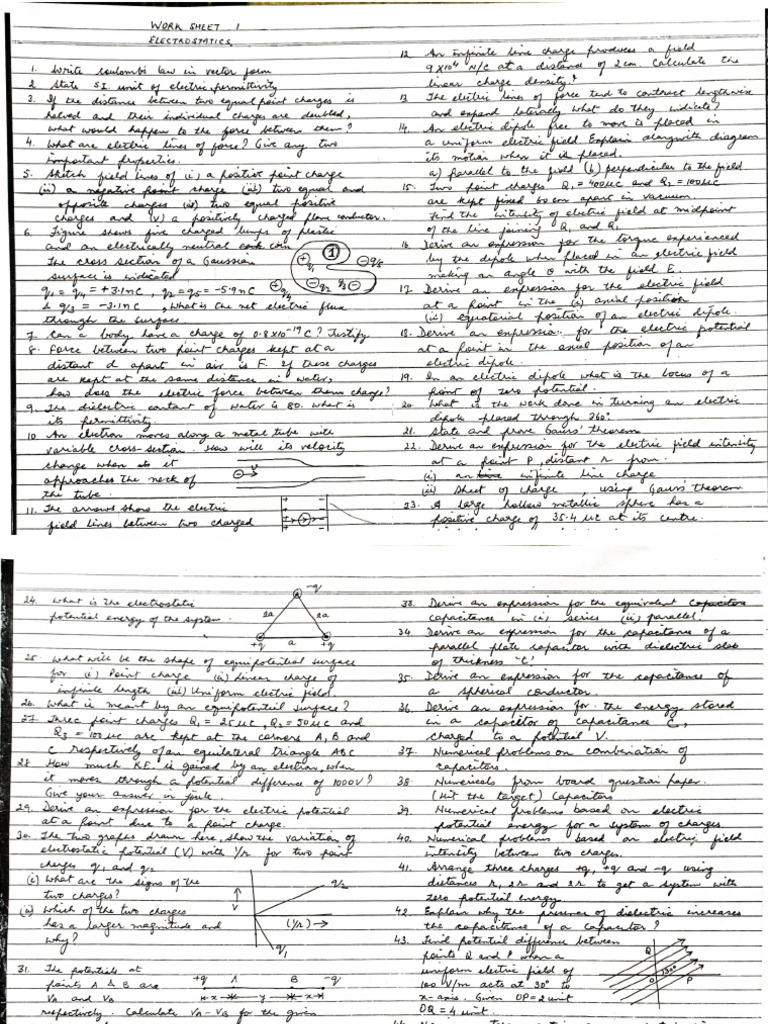 WORK SHEET 1
ELECTROSTATICS
1. Write coulombs law in vector form
2. State SI unit of electric permittivity
3. If the distance between two equal point charges is
halved and their individual charges are doubled,
what would happen to the force between them?
4. What are electric lines of force? Give any two
important properties.
5. Sketch field lines of (i) a positive point charge
(ii) a negative point charge (iii) two equal and
opposite charges (iv) two equal positive
charges and (v) a positively charged plane conductor.
6. Figure shows five charged lumps of plastic
and an electrically neutral coin
The cross section of a Gaussian
surface is indicated
q1 = q4 = +3.1nC, q2 = q5 = -5.9nC
& q3 = -3.1nC, What is the net electric flux
through the surface
1
+q1
-q5
+q4
-q2
q3-
7. Can a body have a charge of 0.8x10⁻¹⁹C? Justify.
8. Force between two point charges kept at a
distant d apart in air is F. If these charges
are kept at the same distance in water,
how does the electric force between them change?
9. The dielectric contant of water is 80. What is
its permittivity.
10. An electron moves along a metal tube with
variable cross-section. How will its velocity
change when it
approaches the neck of
the tube.
11. The arrows show the electric
field lines between two charged
12. An infinite line charge produces a field
9x10⁴ N/C at a distance of 2cm. Calculate the
linear charge density?
13. The electric lines of force tend to contract lengthwise
and expand laterally what do they indicate?
14. An electric dipole free to move is placed in
a uniform electric field. Explain alongwith diagram
its motion when it is placed.
a) parallel to the field (b) perpendicular to the field
15. Two point charges Q1 = 400µC and Q2 = 100µC
are kept fixed 60cm apart in vacuum.
Find the intensity of electric field at midpoint
of the line joining Q1 and Q2
16. Derive an expression for the torque experienced
by the dipole when placed in an electric field
making an angle θ with the field E.
17. Derive an expression for the electric field
at a point in the (i) axial position
(ii) equatorial position of an electric dipole.
18. Derive an expression for the electric potential
at a point in the axial position of an
electric dipole.
19. In an electric dipole what is the locus of a
point of zero potential.
20. What is the work done in turning an electric
dipole placed through 360°
21. State and prove Gauss' theorem
22. Derive an expression for the electric field intensity
at a point P, distant r from.
(i) an infinite line charge
(ii) Sheet of charge, using Gauss' theorem
23. A large hollow metallic sphere has a
positive charge of 35.4 µC at its centre.
24. What is the electrostatic
potential energy of the system.
-q
2a
2a
+q
a
+q
25. What will be the shape of equipotential surface
for (i) Point charge (ii) Linear charge of
infinite length (iii) Uniform electric field.
26. What is meant by an equipotential surface?
27. Three point charges Q1 = 25µC, Q2 = 50µC and
Q3 = 100µC are kept at the corners A, B and
C respectively of an equilateral triangle ABC
28. How much K.E. is gained by an electron, when
it moves through a potential difference of 1000V?
Give your answer in joule.
29. Derive an expression for the electric potential
at a point due to a point charge.
30. The two graphs drawn here, show the variation of
electrostatic potential (V) with 1/r for two point
charges q1 and q2
(i) What are the signs of the
two charges?
(ii) Which of the two charges
has a larger magnitude and
why?
q2
V
(1/r)
q1
31. The potentials at
points A & B are
VA and VB
respectively. Calculate VA - VB for the given
+q A B -q
x y x
33. Derive an expression for the equivalent
capacitance in (i) series (ii) parallel.
34. Derive an expression for the capacitance of a
parallel plate capacitor with dielectric slab
of thickness 't'
35. Derive an expression for the capacitance of
a spherical conductor.
36. Derive an expression for the energy stored
in a capacitor of capacitance C,
charged to a potential V.
37. Numerical problems on combination of
capacitors.
38. Numericals from board question paper.
(Hit the target) Capacitors
39. Numerical problems based on electric
potential energy for a system of charges.
40. Numerical problems based on electric field
intensity between two charges.
41. Arrange three charges +q, +q and -q using
distances r, 2r and 2r to get a system with
zero potential energy.
42. Explain why the presence of dielectric increases
the capacitance of a capacitor?
43. Find potential difference between
points Q and P when a
uniform electric field of
100 V/m acts at 30° to
x-axis. Given OP = 2 unit
OQ = 4 unit.
Q
30°
O
P